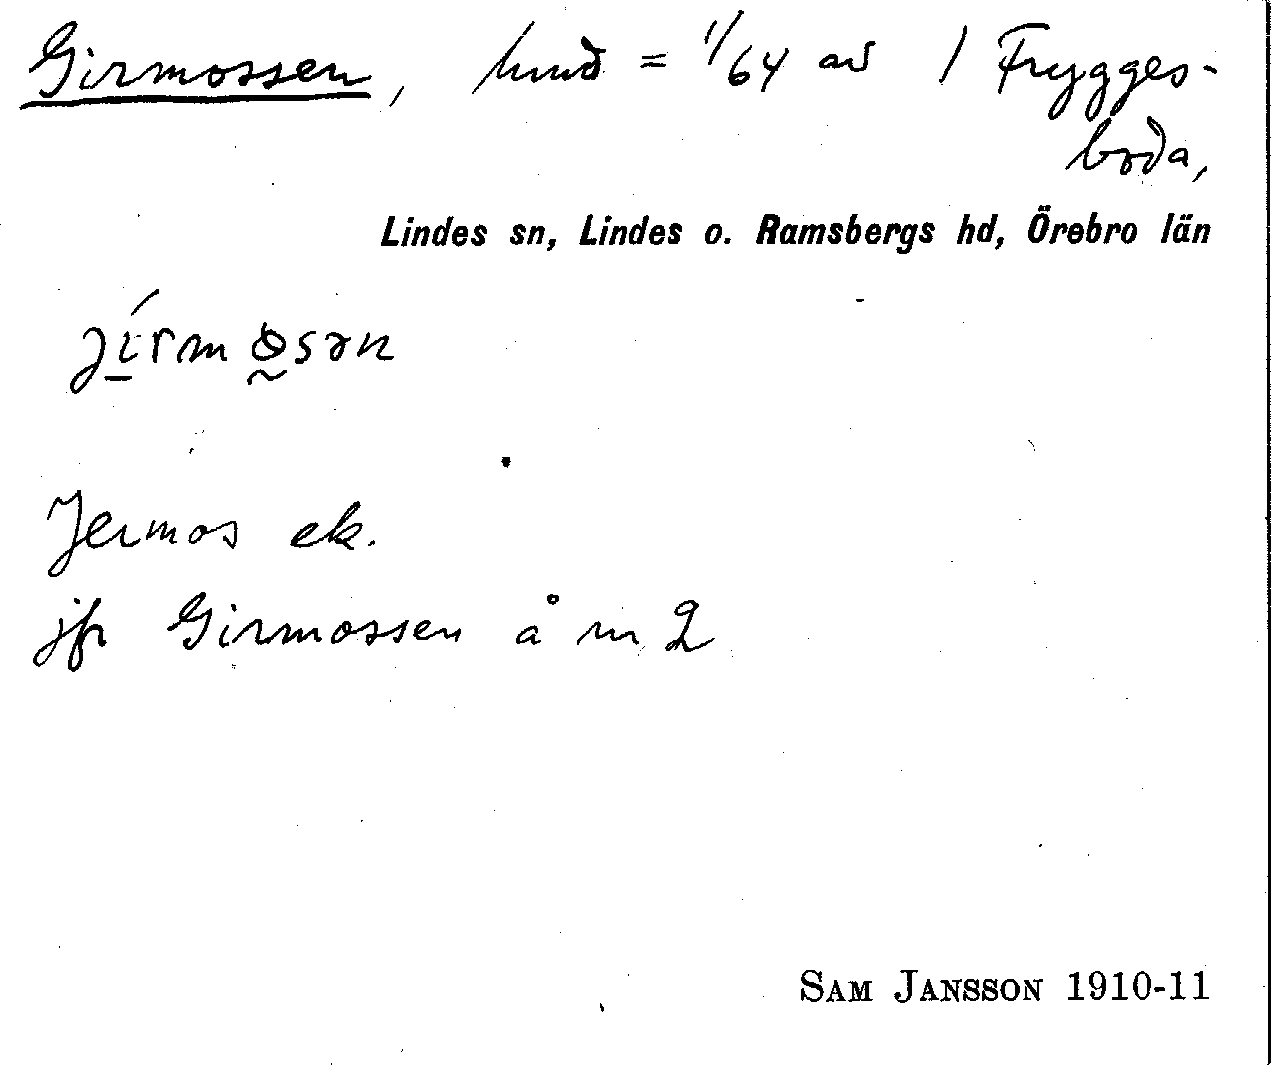 Girmossen, hmd = 1/64 av 1 Frygges-
boda,
Lindes sn, Lindes o. Ramsbergs hd, Örebro län
Jermos ek.
jfr Girmossen å m 2
SAM JANSSON 1910-11